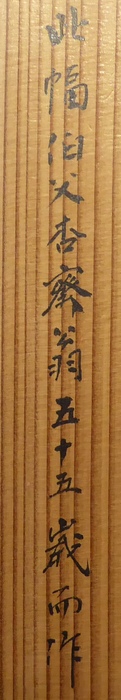 此幅伯父杏齋翁五十五歳而作